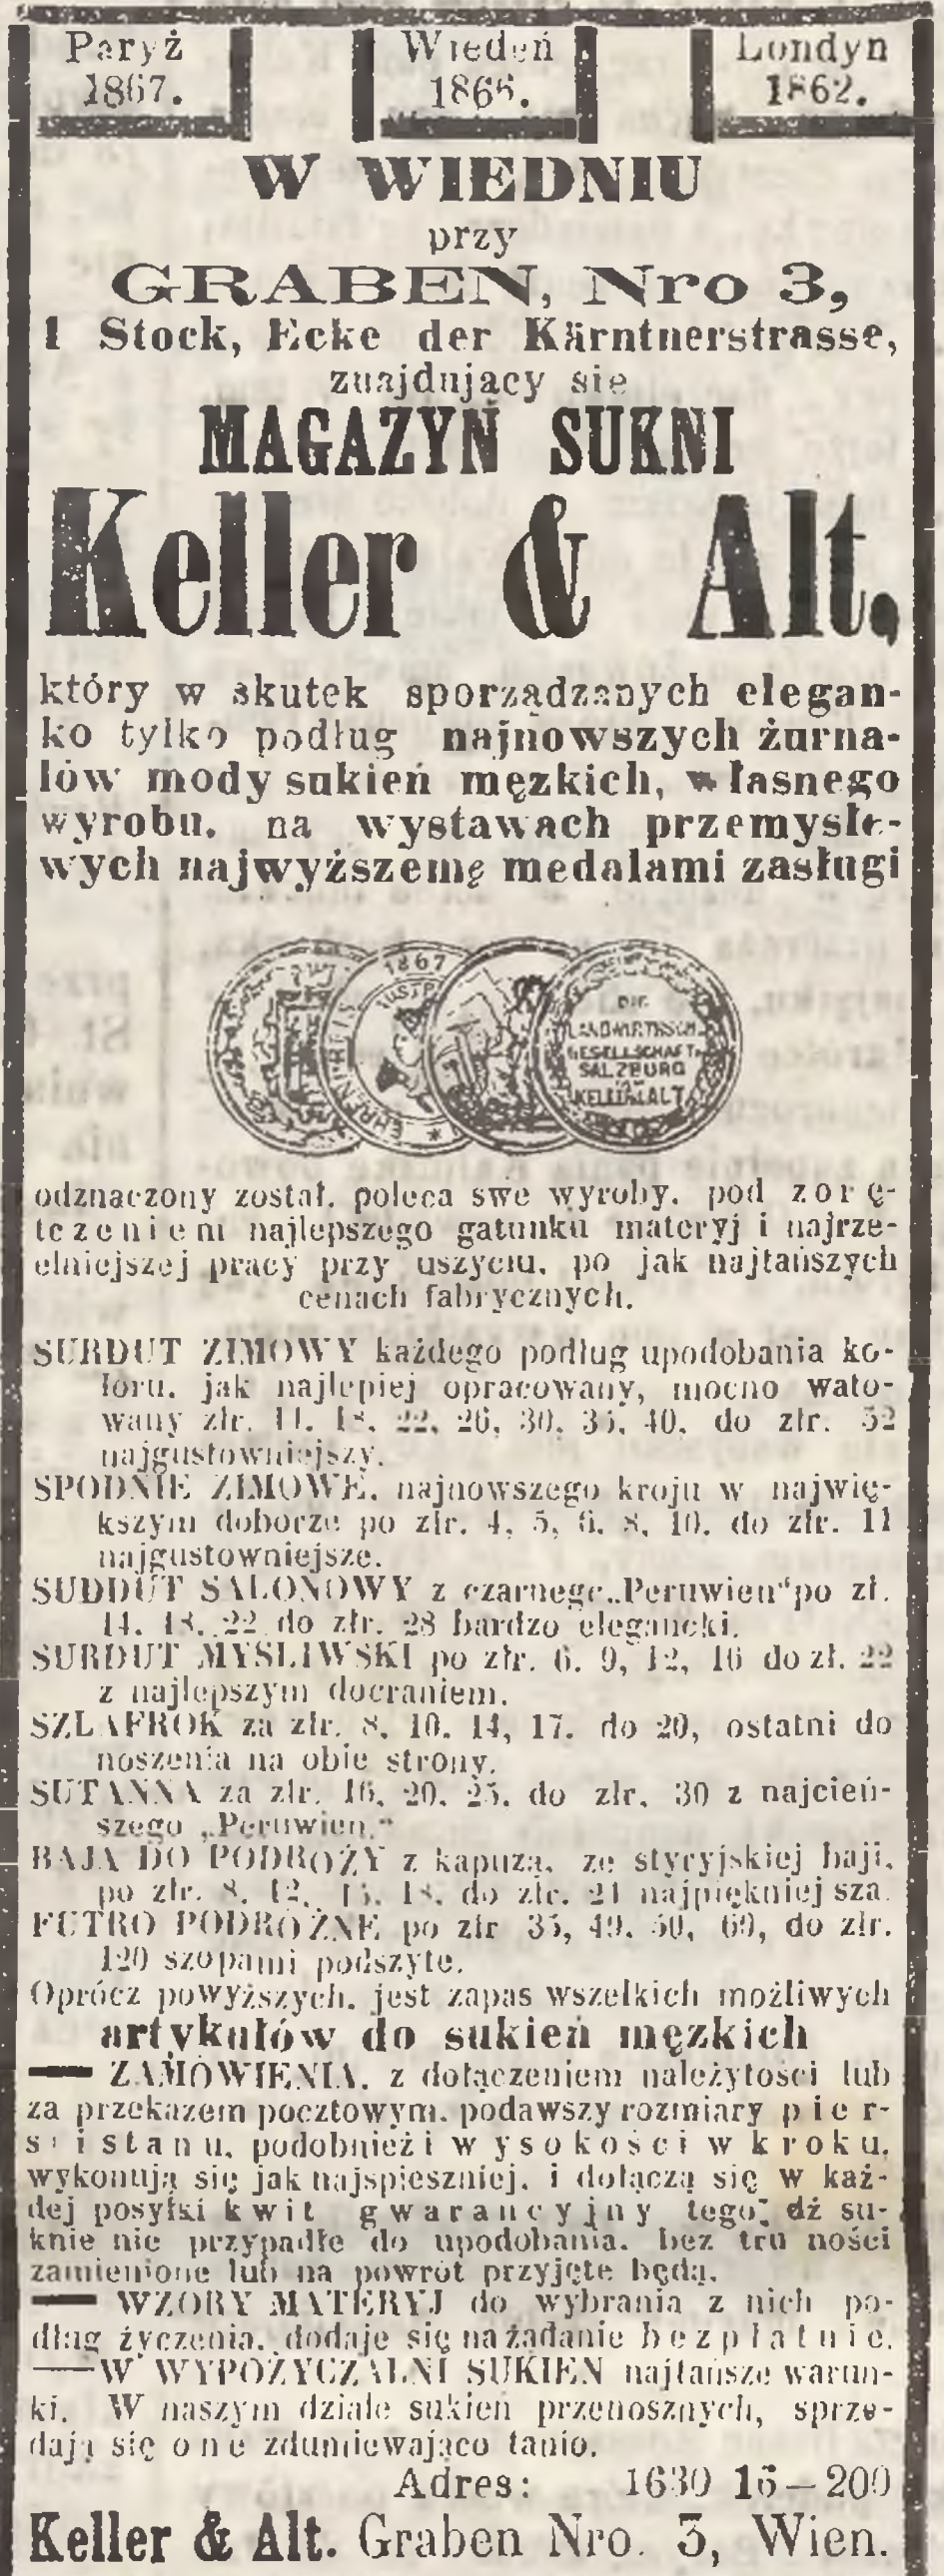 Paryż
1867.
Wiedeń
1866.
Londyn
1862.
W WIEDNIU
przy
GRABEN, Nro 3,
1 Stock, Ecke der Kärntnerstrasse,
znajdujący się
MAGAZYN SUKNI
Keller & Alt,
który w skutek sporządzanych elegan-
ko tylko podług najnowszych żurna-
lów mody sukień męzkich, własnego
wyrobu, na wystawach przemysło-
wych najwyższemę medalami zasługi
1867
EHRENPREIS
DIE
LANDWIRTHSCH.
GESELLSCHAFT
SALZBURG
KELLER & ALT
odznaczony został, poleca swe wyroby, pod zorę-
tczeniem najlepszego gatunku materyj i najrze-
elniejszej pracy przy uszyciu, po jak najtańszych
cenach fabrycznych.
SURDUT ZIMOWY każdego podług upodobania ko-
loru, jak najlepiej opracowany, mocno wato-
wany złr. 14. 18, 22, 26, 30, 35, 40, do złr. 52
najgustowniejszy.
SPODNIE ZIMOWE, najnowszego kroju w najwię-
kszym doborze po złr. 4, 5, 6, 8, 10, do złr. 11
najgustowniejsze.
SUDDUT SALONOWY z czarnego „Peruwien“ po zł.
14. 18. 22 do złr. 28 bardzo elegancki.
SURDUT MYSLIWSKI po złr. 6. 9, 12, 16 do zł. 22
z najlepszym docraniem.
SZLAFROK za złr. 8, 10. 14, 17. do 20, ostatni do
noszenia na obie strony.
SUTANNA za złr. 16, 20, 25, do złr. 30 z najcień-
szego „Peruwien.“
BAJA DO PODROŻY z kapuzą, ze styryjskiej baji,
po złr. 8, 12, 15. 18, do złr. 21 najpiękniejsza.
FUTRO PODRÓŻNE po złr 35, 49. 50, 60, do złr.
120 szopami podszyte.
Oprócz powyższych, jest zapas wszelkich możliwych
artykułów do sukień męzkich
— ZAMÓWIENIA, z dołączeniem należytości lub
za przekazem pocztowym, podawszy rozmiary pier-
si i stanu, podobnież i wysokości w kroku,
wykonują się jak najspieszniej, i dołączą się w każ-
dej posyłki kwit gwarancyjny tego, dź su-
knie nie przypadłe do upodobania, bez tru ności
zamienione lub na powrót przyjęte będą.
— WZORY MATERYJ do wybrania z nich po-
dług życzenia, dodaje się na żądanie bezpłatnie.
— W WYPOŻYCZALNI SUKIEN najtańsze warun-
ki. W naszym dziale sukień przenosznych, sprze-
dają się one zdumiewająco tanio.
Adres: 1630 16—200
Keller & Alt. Graben Nro. 3, Wien.